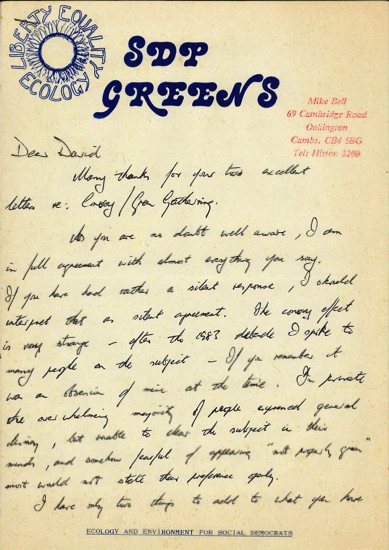 LIBERTY EQUALITY ECOLOGY
SDP
GREENS
Mike Bell
69 Cambridge Road
Oakington
Cambs. CB4 5BG
Tel: Histon 3260
Dear David
Many thanks for your two excellent
letters re: Conroy / Green Gathering.
As you are no doubt well aware, I am
in full agreement with almost everything you say.
If you have had rather a silent response, I should
interpret that as silent agreement. The effect
is very strange - after the 1983 debacle I spoke to
many people on the subject - If you remember it
was an obsession of mine at the time. In private
the overwhelming majority of people expressed general
dismay, but unable to clear the subject in their
minds, and somehow fearful of appearing "not properly green"
most would not state their preference openly.
I have only two things to add to what you have
ECOLOGY AND ENVIRONMENT FOR SOCIAL DEMOCRATS